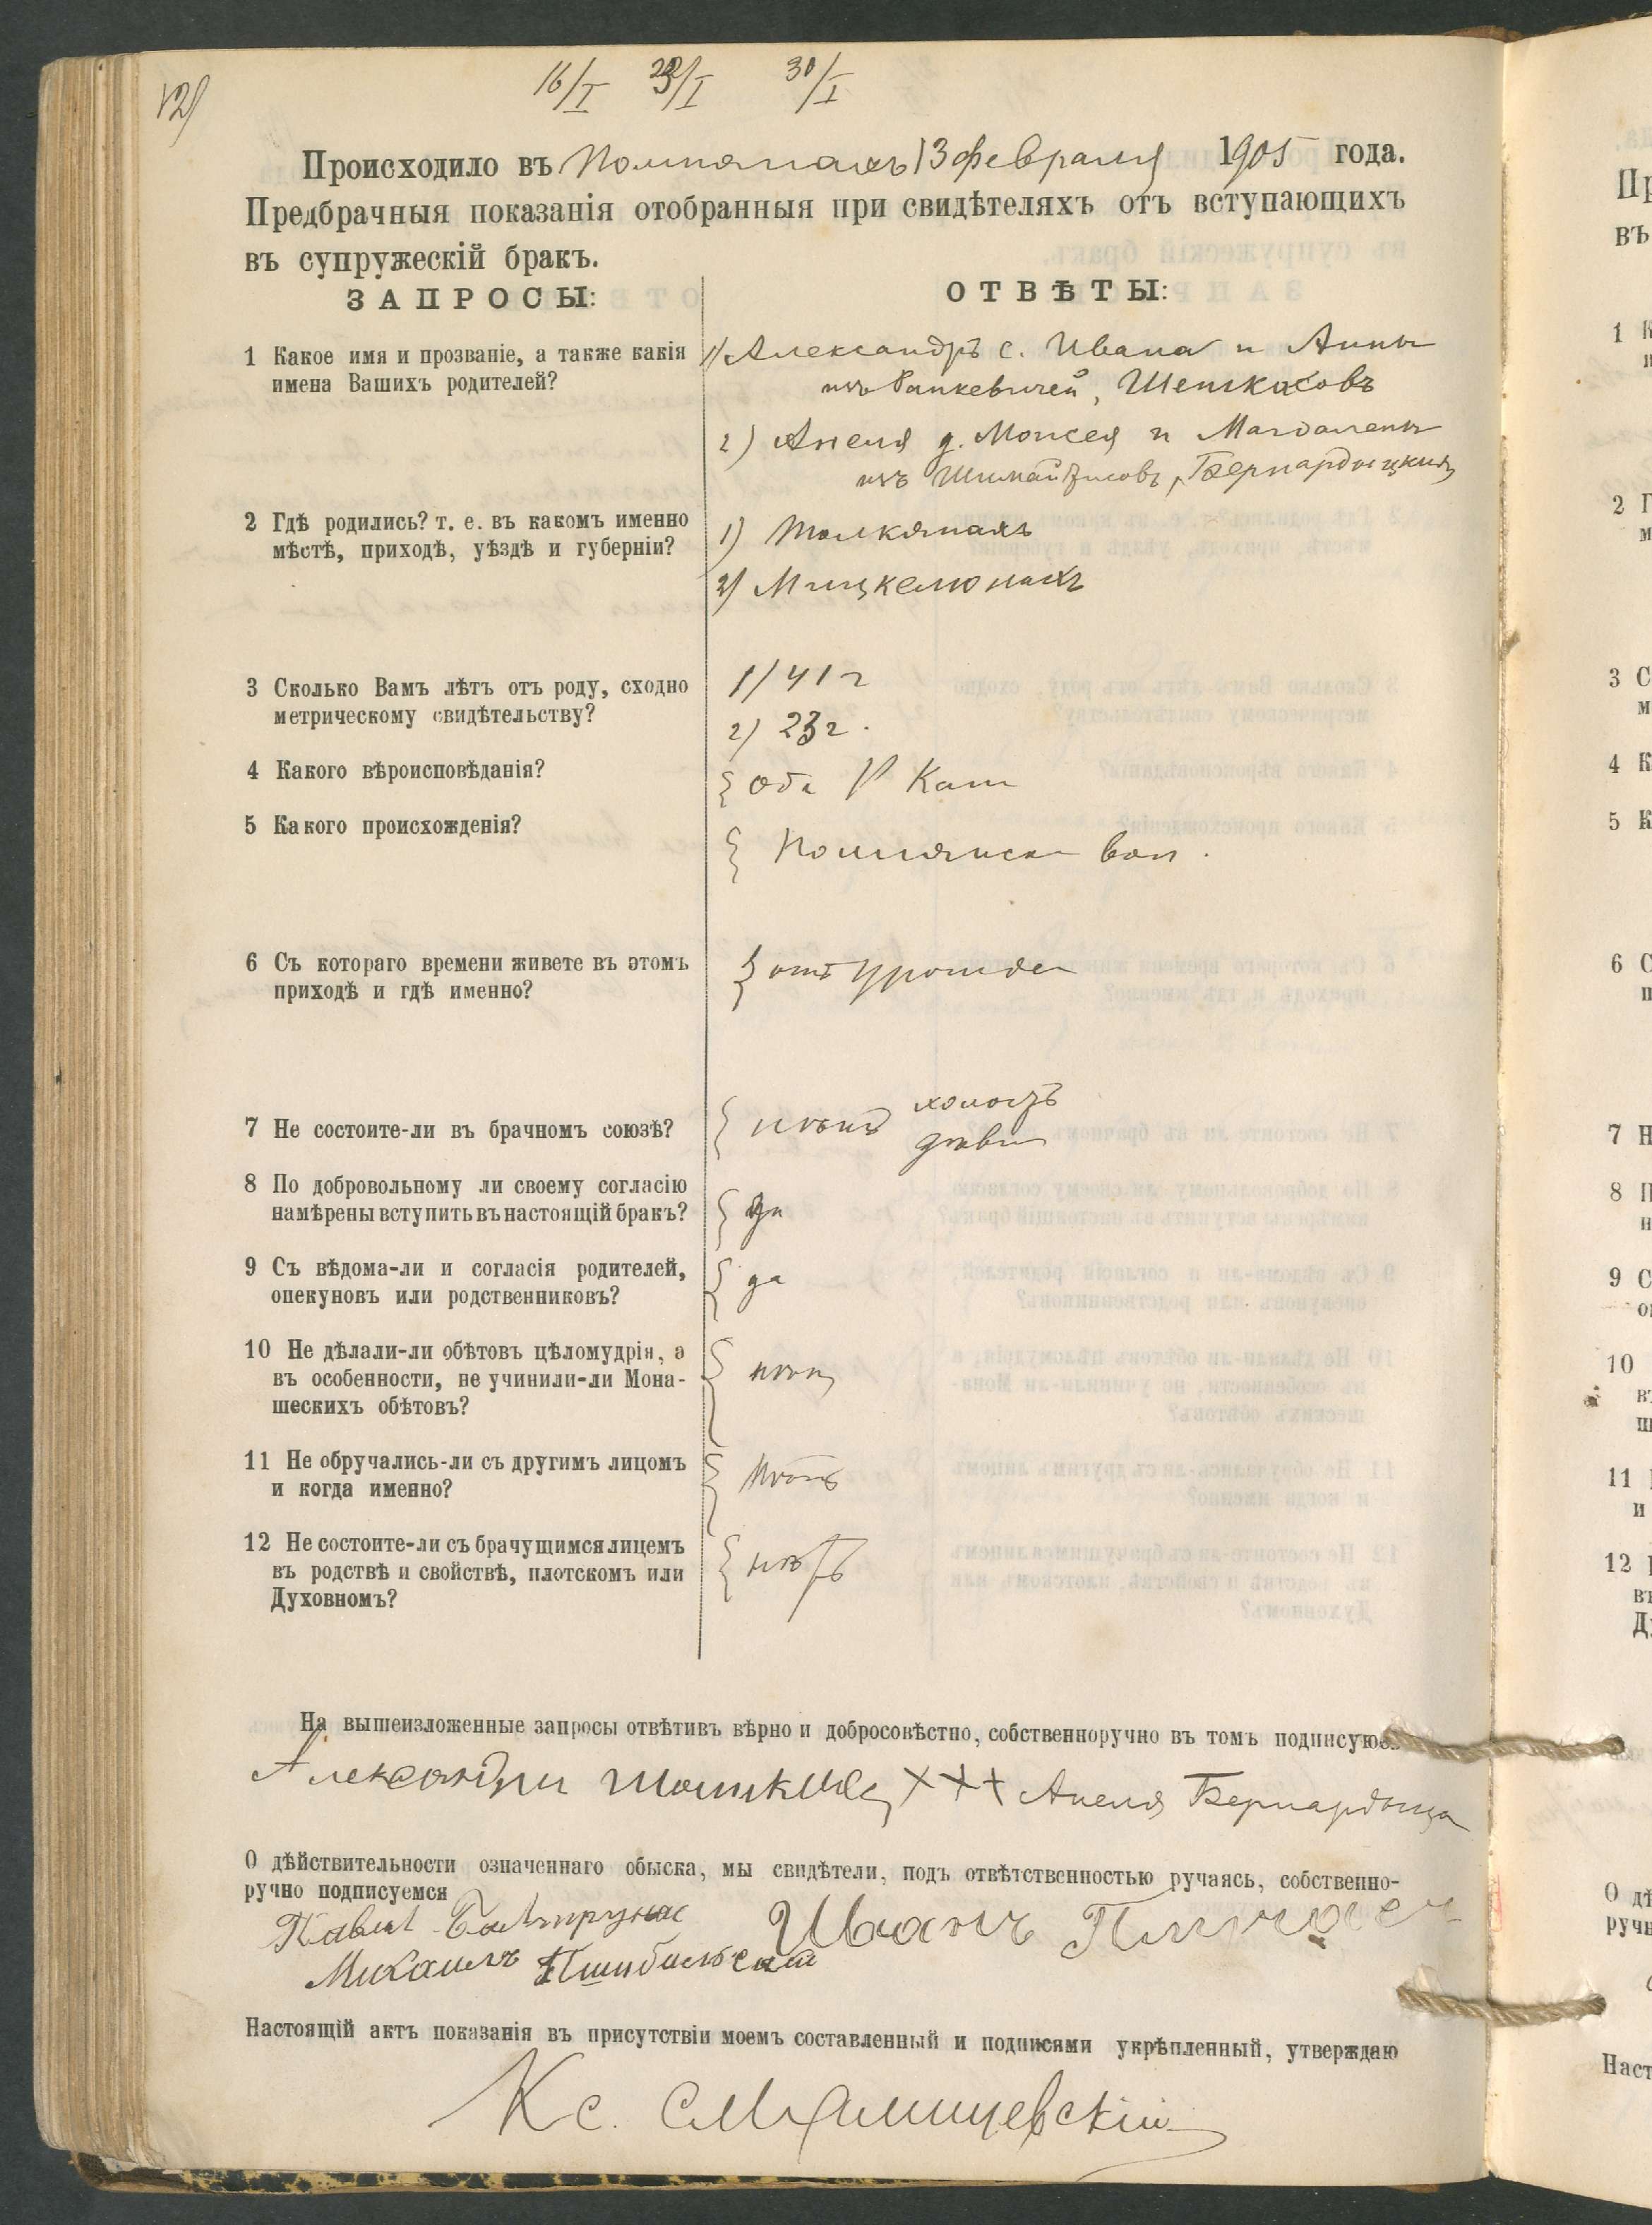 12)
16/I 23/I 30/I
Происходило въ 13 февраля 1905 года.
Предбрачныя показанія отобранныя при свидѣтеляхъ отъ вступающихъ
въ супружескій бракъ.
ЗАПРОСЫ:
ОТВѢТЫ:
1 Какое имя и прозваніе, а также какія
имена Вашихъ родителей?
1) Александръ с. Ивана и Анны
изъ
2) Анеля д. Моисея и Магдалены
изъ
2 Гдѣ родились? т. е. въ какомъ именно
мѣстѣ, приходѣ, уѣздѣ и губерніи?
1)
2) Мицкелюнахъ
3 Сколько Вамъ лѣтъ отъ роду, сходно
метрическому свидѣтельству?
1) 41 г
2) 23 г.
4 Какого вѣроисповѣданія?
оба Р Кат
5 Какого происхожденія?
вол.
6 Съ котораго времени живете въ этомъ
приходѣ и гдѣ именно?
отъ урожде
7 Не состоите-ли въ брачномъ союзѣ?
нѣтъ холостъ
дѣви
8 По добровольному ли своему согласію
намѣрены вступить въ настоящій бракъ?
да
9 Съ вѣдома-ли и согласія родителей,
опекуновъ или родственниковъ?
да
10 Не дѣлали-ли обѣтовъ цѣломудрія, а
въ особенности, не учинили-ли Мона-
шескихъ обѣтовъ?
нѣтъ
11 Не обручались-ли съ другимъ лицомъ
и когда именно?
нѣтъ
12 Не состоите-ли съ брачущимся лицемъ
въ родствѣ и свойствѣ, плотскомъ или
Духовномъ?
нѣтъ
На вышеизложенные запросы отвѣтивъ вѣрно и добросовѣстно, собственноручно въ томъ подписуюсь
+++ Анеля
О дѣйствительности означеннаго обыска, мы свидѣтели, подъ отвѣтственностью ручаясь, собственно-
ручно подписуемся
Иванъ
Михаилъ Пшибыльскій
Настоящій актъ показанія въ присутствіи моемъ составленный и подписями укрѣпленный, утверждаю
Кс.